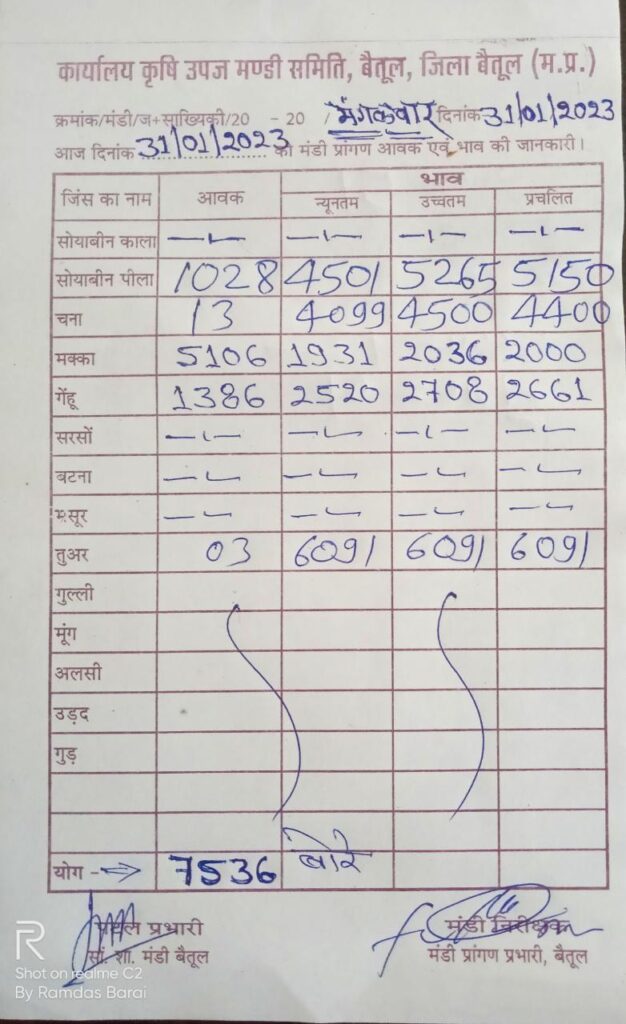 कार्यालय कृषि उपज मण्डी समिति, बैतूल, जिला बैतूल (म.प्र.)
क्रमांक/मंडी/ज+सांख्यिकी/20 - 20 / मंगलवार दिनांक 31/01/2023
आज दिनांक 31/01/2023 को मंडी प्रांगण आवक एवं भाव की जानकारी।
जिंस का नाम आवक भाव
न्यूनतम उच्चतम प्रचलित
सोयाबीन काला -ı- -ı- -ı- -ı-
सोयाबीन पीला 1028 4501 5265 5150
चना 13 4099 4500 4400
मक्का 5106 1931 2036 2000
गेंहू 1386 2520 2708 2661
सरसों -ı- -ı- -ı- -ı-
बटना -ı- -ı- -ı- -ı-
मसूर -ı- -ı- -ı- -ı-
तुअर 03 6091 6091 6091
गुल्ली
मूंग
अलसी
उड़द
गुड़
योग → 7536 बोरे
प्रभारी मंडी निरीक्षक
सां. शा. मंडी बैतूल मंडी प्रांगण प्रभारी, बैतूल
R
Shot on realme C2
By Ramdas Barai